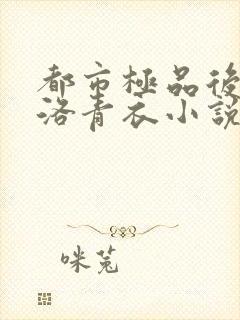 都市極品後
洛青衣小說
咪兎